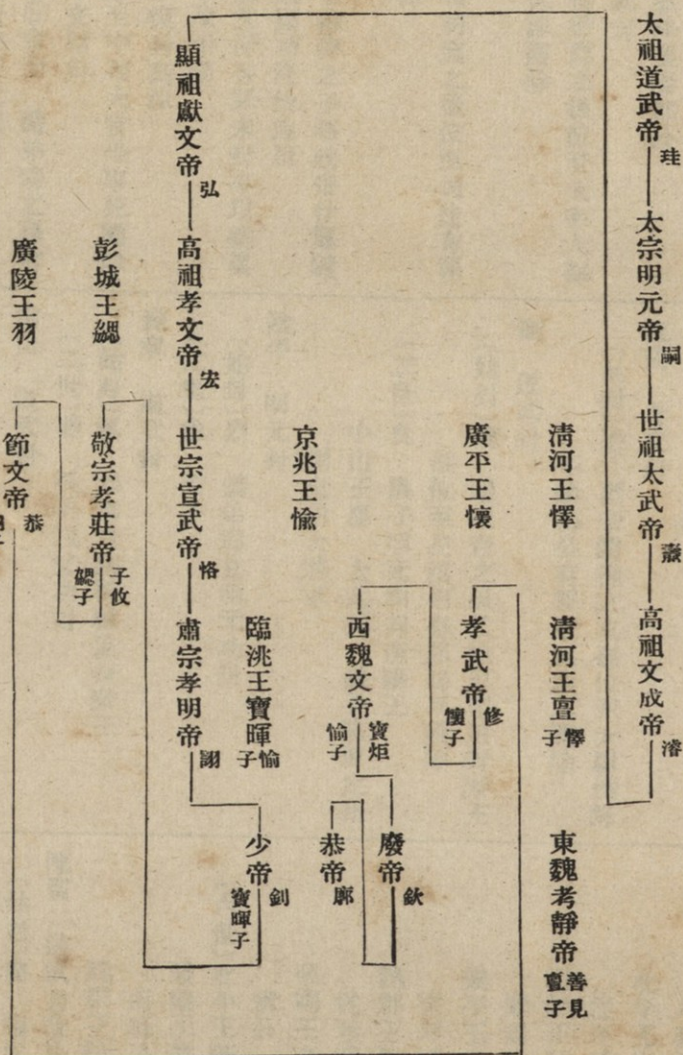 太祖道武帝 珪 太宗明元帝 嗣 世祖太武帝 燾 高祖文成帝 濬
清河王懌 清河王亶 懌子 東魏考靜帝 善見 亶子
廣平王懷 孝武帝 修 懷子
廢帝 欽
西魏文帝 寶炬 愉子
恭帝 廓
京兆王愉
臨洮王寶暉 愉子 少帝 釗 寶暉子
顯祖獻文帝 弘 高祖孝文帝 宏 世宗宣武帝 恪 肅宗孝明帝 詡
彭城王勰 敬宗孝莊帝 子攸 勰子
廣陵王羽 節文帝 恭